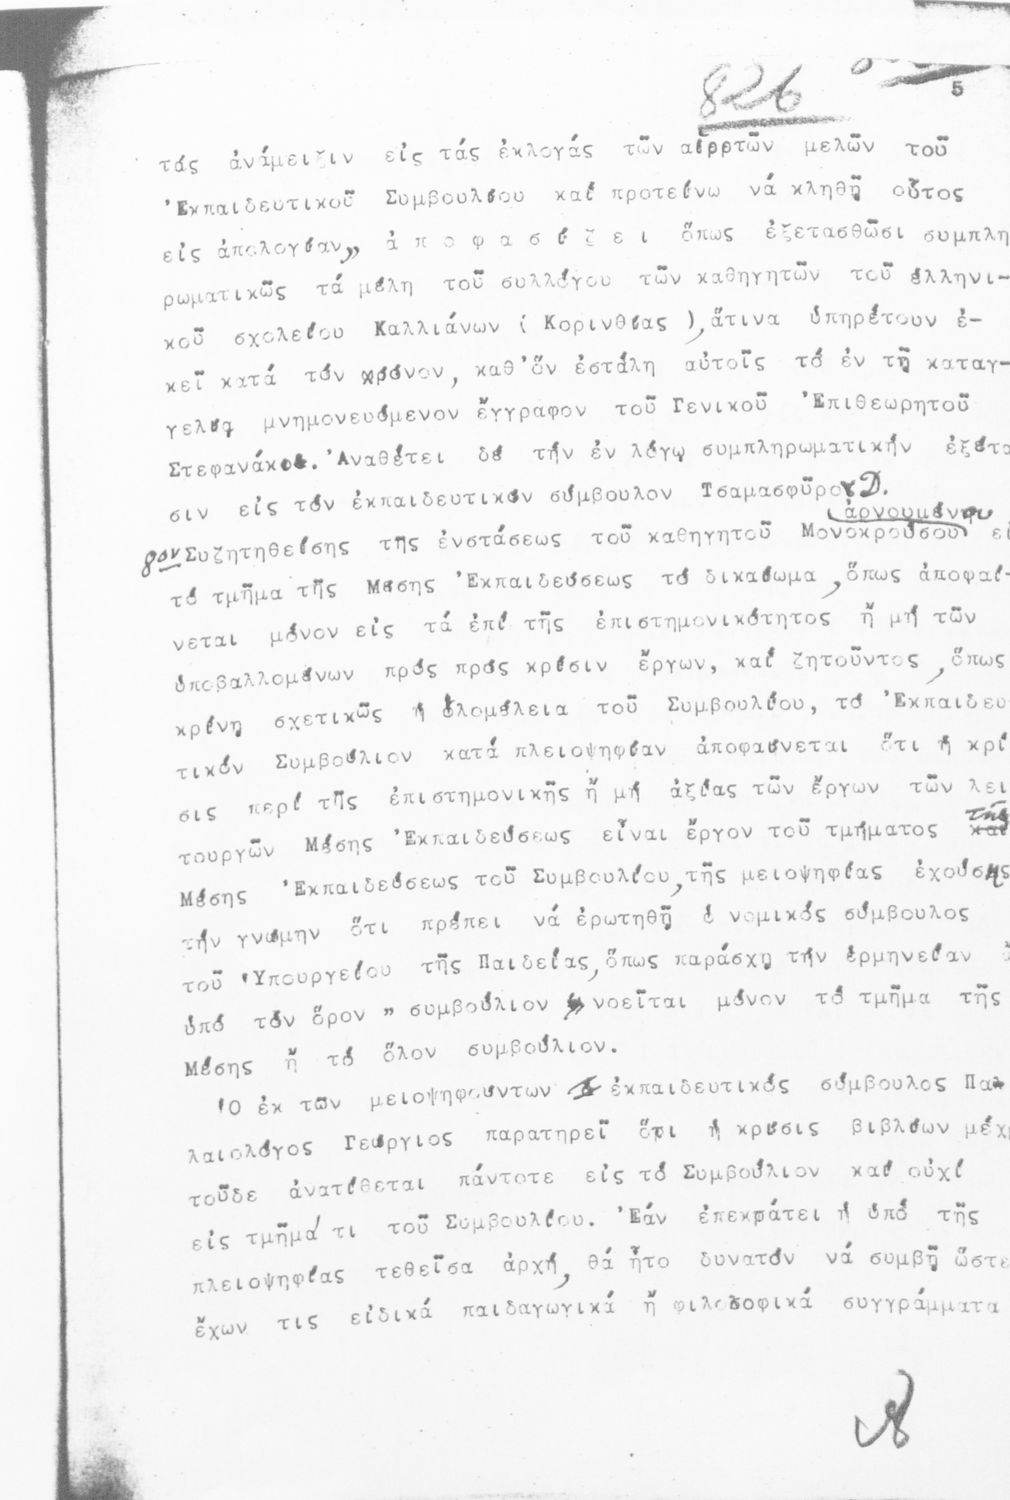 826
5
τάς ἀνάμειξιν εἰς τάς ἐκλογάς τῶν αἱρετῶν μελῶν τοῦ
Ἐκπαιδευτικοῦ Συμβουλίου καί προτείνω νά κληθῇ οὗτος
εἰς ἀπολογίαν,, ἀ π ο φ α σ ί ζ ε ι ὅπως ἐξετασθῶσι συμπλη
ρωματικῶς τά μέλη τοῦ συλλόγου τῶν καθηγητῶν τοῦ ἑλληνι-
κοῦ σχολείου Καλλιάνων ( Κορινθίας ), ἅτινα ὑπηρέτουν ἐ-
κεῖ κατά τόν χρόνον, καθ'ὅν ἐστάλη αὐτοῖς τό ἐν τῇ καταγ-
γελίᾳ μνημονευόμενον ἔγγραφον τοῦ Γενικοῦ Ἐπιθεωρητοῦ
Στεφανάκου. Ἀναθέτει δέ τήν ἐν λόγῳ συμπληρωματικήν ἐξέτα
σιν εἰς τόν ἐκπαιδευτικόν σύμβουλον Τσαμασφῦρον Δ.
ἀρνουμένου
8ον Συζητηθείσης τῆς ἐνστάσεως τοῦ καθηγητοῦ Μονοκρούσου εἰ
τό τμῆμα τῆς Μέσης Ἐκπαιδεύσεως τό δικαίωμα, ὅπως ἀποφαί-
νεται μόνον εἰς τά ἐπί τῆς ἐπιστημονικότητος ἤ μή τῶν
ὑποβαλλομένων πρός πρός κρίσιν ἔργων, καί ζητοῦντος, ὅπως
κρίνῃ σχετικῶς ἡ ὁλομέλεια τοῦ Συμβουλίου, τό Ἐκπαιδευ
τικόν Συμβούλιον κατά πλειοψηφίαν ἀποφαίνεται ὅτι ἡ κρί
σις περί τῆς ἐπιστημονικῆς ἤ μή ἀξίας τῶν ἔργων τῶν λει
τουργῶν Μέσης Ἐκπαιδεύσεως εἶναι ἔργον τοῦ τμήματος τῆς
Μέσης Ἐκπαιδεύσεως τοῦ Συμβουλίου, τῆς μειοψηφίας ἐχούσης
τήν γνώμην ὅτι πρέπει νά ἐρωτηθῇ ὁ νομικός σύμβουλος
τοῦ Ὑπουργείου τῆς Παιδείας, ὅπως παράσχῃ τήν ἑρμηνείαν ἄ
ὑπό τόν ὅρον ,, συμβούλιον ,, νοεῖται μόνον τό τμῆμα τῆς
Μέσης ἤ τό ὅλον συμβούλιον.
Ὁ ἐκ τῶν μειοψηφούντων ἐκπαιδευτικός σύμβουλος Πα-
λαιολόγος Γεώργιος παρατηρεῖ ὅτι ἡ κρίσις βιβλίων μέχρ
τοῦδε ἀνατίθεται πάντοτε εἰς τό Συμβούλιον καί οὐχί
εἰς τμῆμά τι τοῦ Συμβουλίου. Ἐάν ἐπεκράτει ἡ ὑπό τῆς
πλειοψηφίας τεθεῖσα ἀρχή, θά ἦτο δυνατόν νά συμβῇ ὥστε
ἔχων τις εἰδικά παιδαγωγικά ἤ φιλοσοφικά συγγράμματα